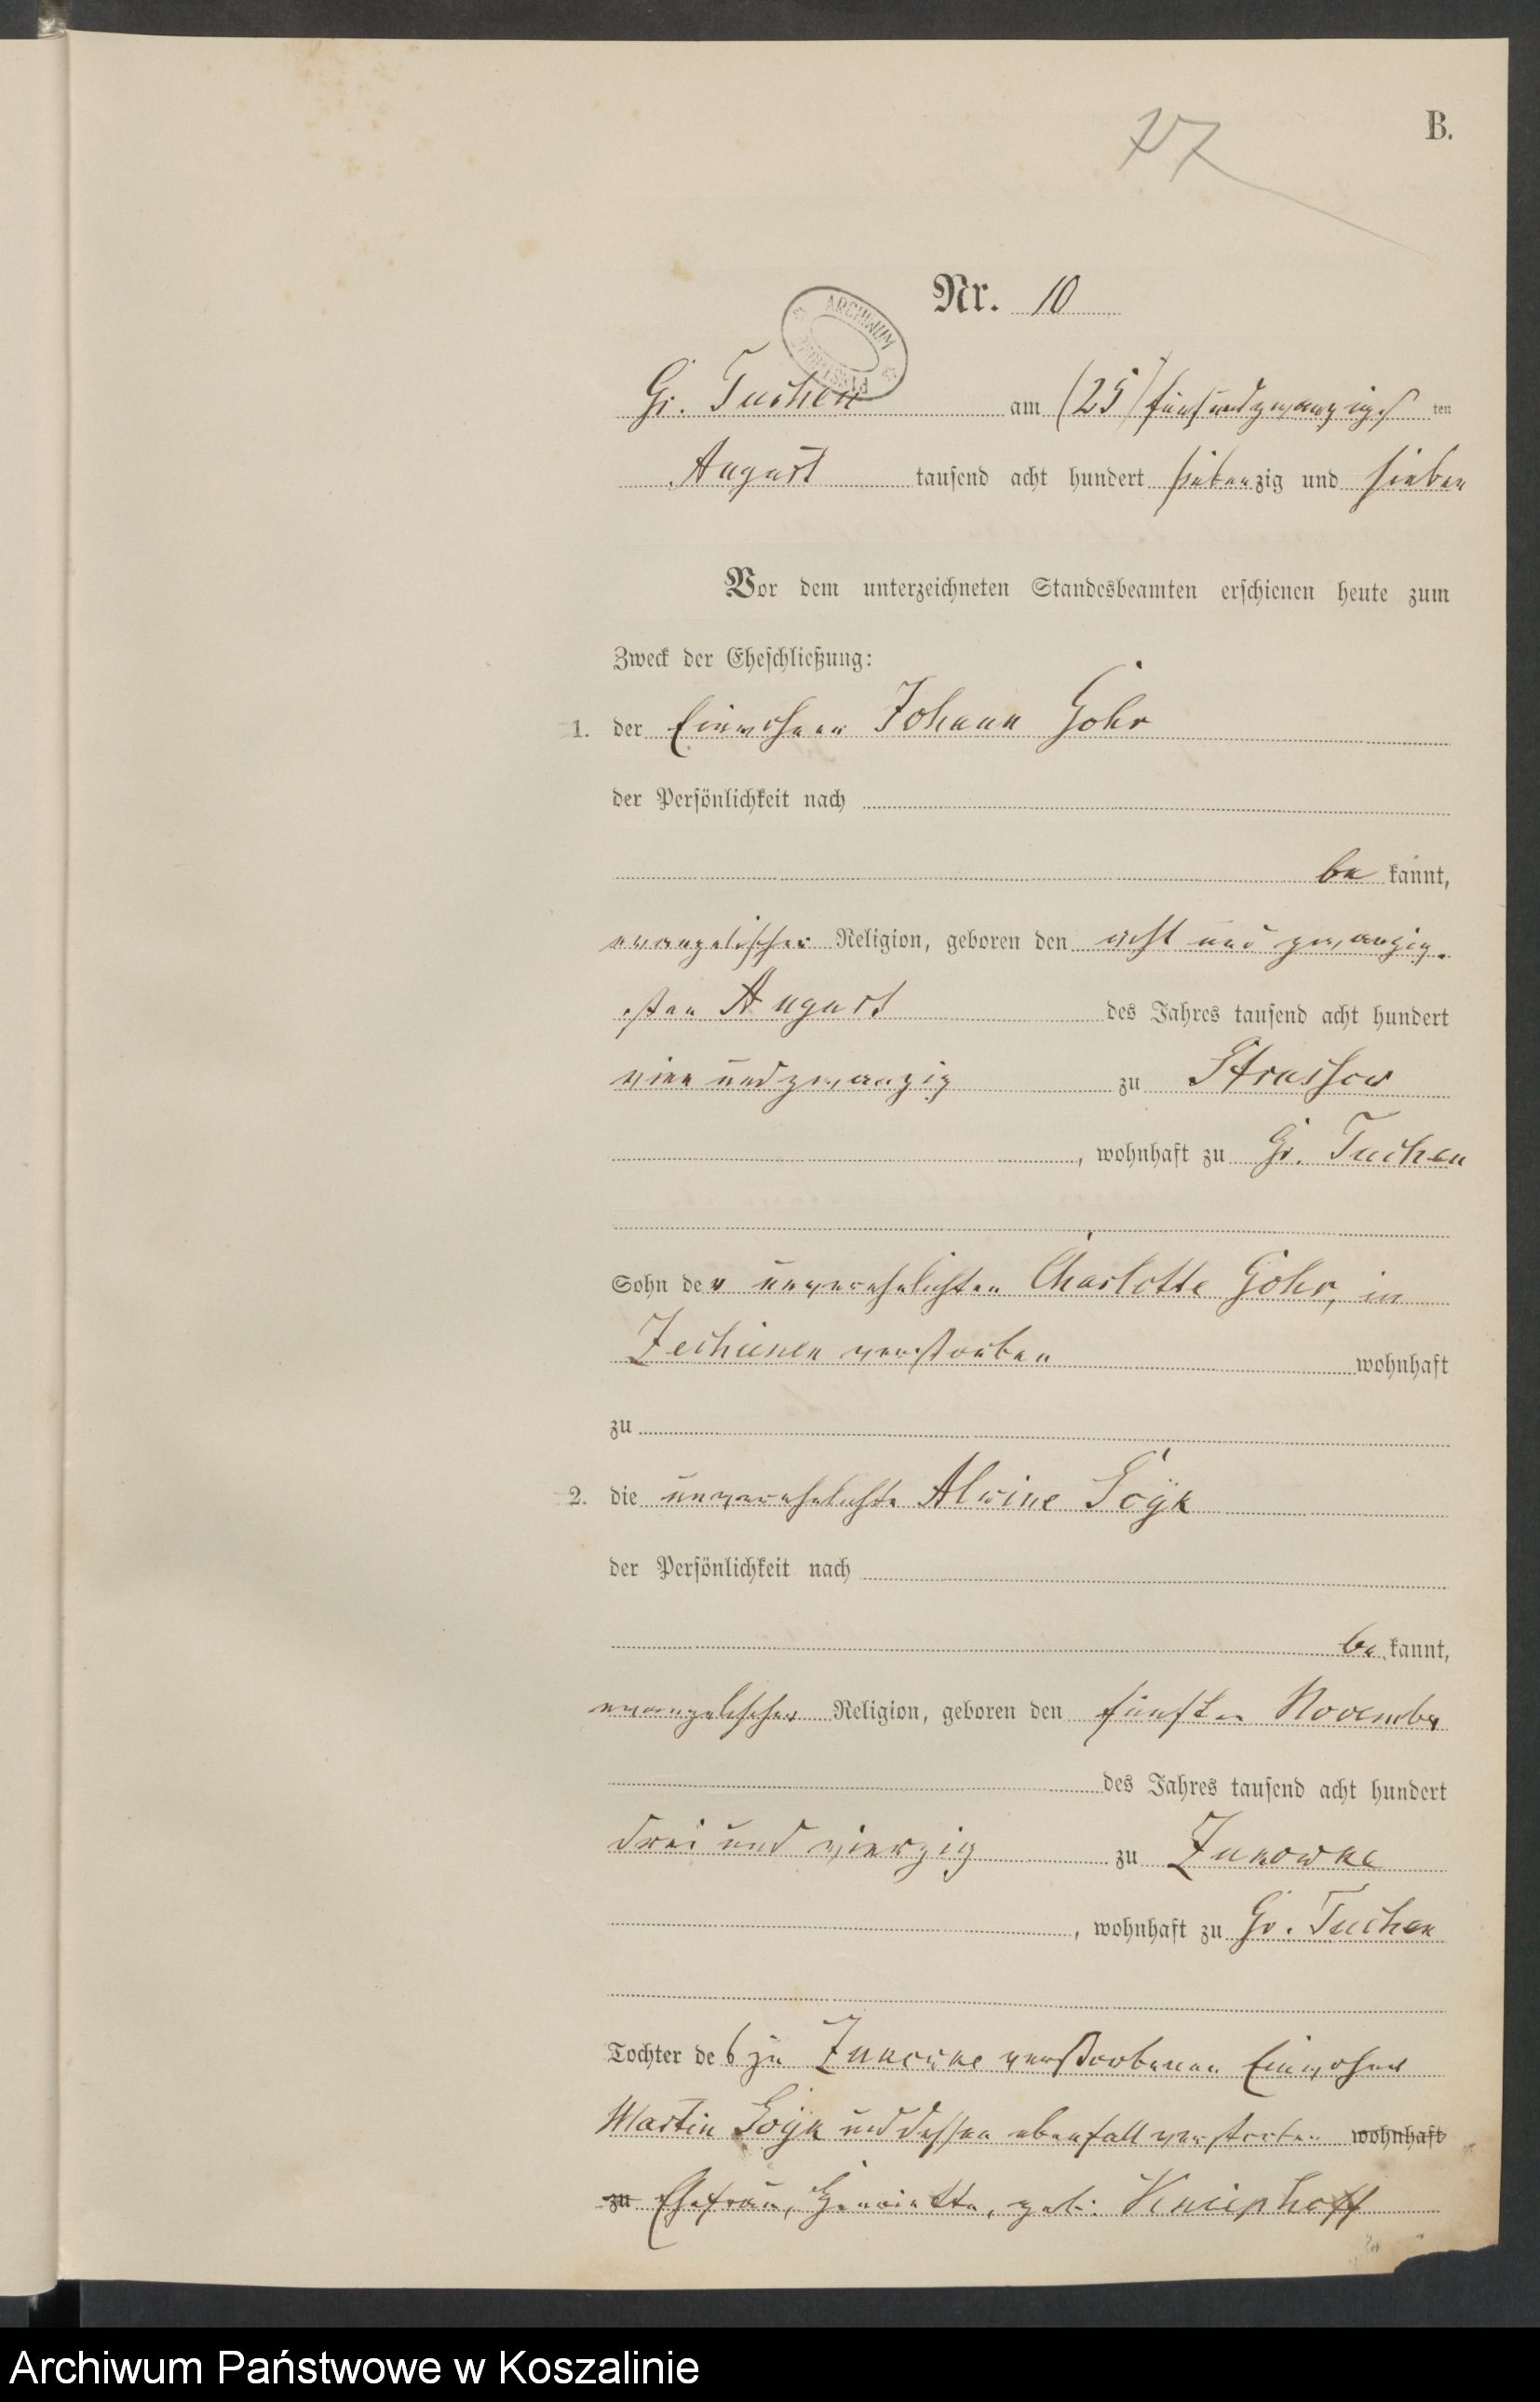 77
B.
Nr. 10
ARCHIWUM
Gr. Tuchen am (25) fünfundzwanzigsten
August tausend acht hundert siebenzig und sieben
Vor dem unterzeichneten Standesbeamten erschienen heute zum
Zweck der Eheschließung:
1. der Einwohner Johann Gohr
der Persönlichkeit nach
bekannt,
evangelischer Religion, geboren den acht und zwanzig-
sten August des Jahres tausend acht hundert
vier und zwanzig zu Strussow
, wohnhaft zu Gr. Tuchen
Sohn der unverehelichten Charlotte Gohr, in
Zechinen verstorben wohnhaft
zu
2. die unverehelichte Alwine Goÿk
der Persönlichkeit nach
bekannt,
evangelischer Religion, geboren den fünften November
des Jahres tausend acht hundert
drei und vierzig zu Zukowke
, wohnhaft zu Gr. Tuchen
Tochter des zu Zukowke verstorbenen Einwohner
Martin Goÿk und dessen ebenfall verstorben wohnhaft
zu Ehefrau, Henriette, geb. Kneiphoff
Archiwum Państwowe w Koszalinie